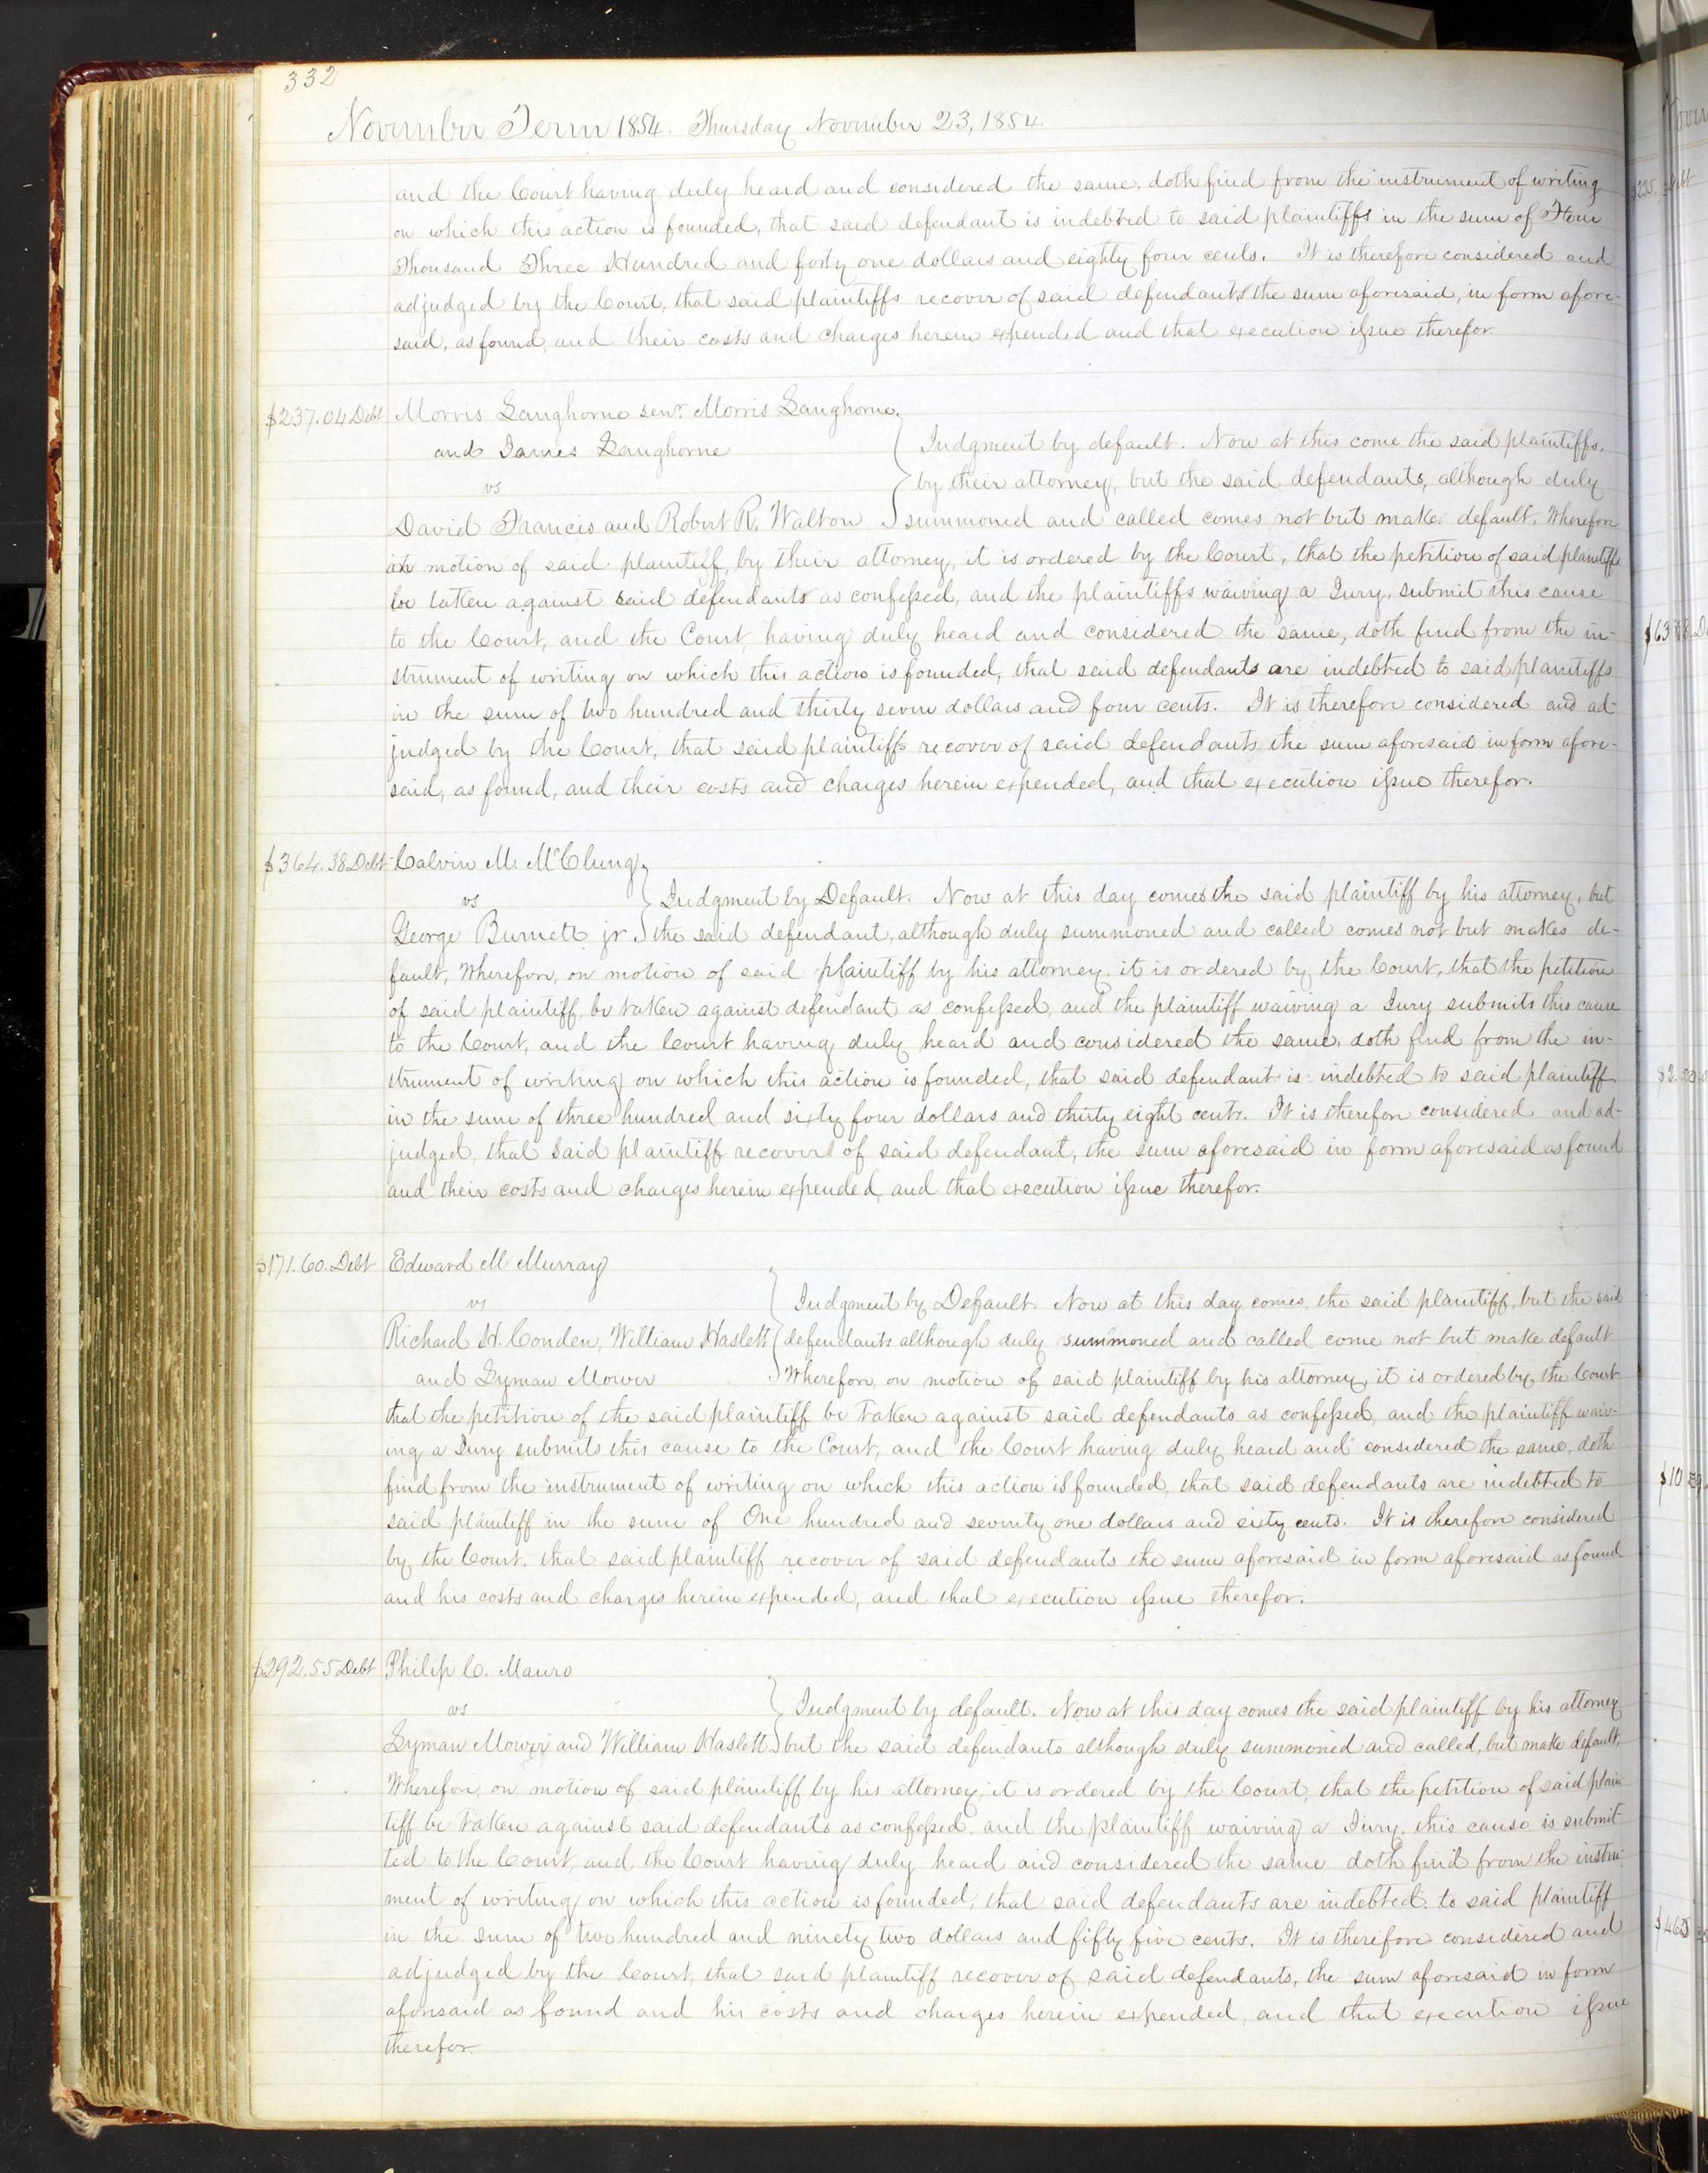 332
November Term 1854. Thursday November 23, 1854.
and the Court having duly heard and considered the same, doth find from the instrument of writing
on which this action is founded, that said defendant is indebted to said plaintiffs in the sum of Four
Thousand Three Hundred and forty one dollars and eighty four cents. It is therefore considered and
adjudged by the Court, that said plaintiffs recover of said defendant the sum aforesaid, in form afore-
said, as found, and their costs and charges herein expended and that execution issue therefor.
$237.04 Debt Morris Langhorne senr. Morris Langhorne,
and James Langhorne
Judgment by default. Now at this come the said plaintiffs,
vs
by their attorney, but the said defendants, although duly
David Francis and Robert R. Walton summoned and called comes not but make default. Wherefore
on motion of said plaintiff, by their attorney, it is ordered by the Court, that the petition of said plaintiffs
be taken against said defendants as confessed, and the plaintiffs waiving a Jury, submit this cause
to the Court, and the Court, having duly heard and considered the same, doth find from the in-
strument of writing on which this action is founded, that said defendants are indebted to said plaintiffs
in the sum of two hundred and thirty seven dollars and four cents. It is therefore considered and ad-
judged by the Court, that said plaintiffs recover of said defendants the sum aforesaid in form afore-
said, as found, and their costs and charges herein expended, and that execution issue therefor.
$364.38 Debt Calvin M. McClung,
vs
Judgment by Default. Now at this day comes the said plaintiff by his attorney, but
George Burnett jr. the said defendant, although duly summoned and called comes not but makes de-
fault, Wherefore, on motion of said plaintiff by his attorney, it is ordered by the Court, that the petition
of said plaintiff, be taken against defendant as confessed, and the plaintiff waiving a Jury submits this cause
to the Court, and the Court having duly heard and considered the same, doth find from the in-
strument of writing on which this action is founded, that said defendant is indebted to said plaintiff
in the sum of three hundred and sixty four dollars and thirty eight cents. It is therefore considered and ad-
judged, that said plaintiff recover of said defendant, the sum aforesaid in form aforesaid as found
and their costs and charges herein expended, and that execution issue therefor.
$171.60. Debt Edward M Murray
vs
Judgment by Default. Now at this day comes, the said plaintiff, but the said
Richard H. Conden, William Haslett defendants although duly summoned and called come not but make default
and Lyman Mower Wherefore, on motion of said plaintiff by his attorney, it is ordered by the Court
that the petition of the said plaintiff be taken against said defendants as confessed, and the plaintiff waiv-
ing a Jury submits this cause to the Court, and the Court having duly heard and considered the same, doth
find from the instrument of writing on which this action is founded, that said defendants are indebted to
said plaintiff in the sum of One hundred and seventy one dollars and sixty cents. It is therefore considered
by the Court, that said plaintiff recover of said defendants the sum aforesaid in form aforesaid as found
and his costs and charges herein expended, and that execution issue therefor.
$292.55 Debt Philip C. Mauro
vs
Judgment by default. Now at this day comes the said plaintiff by his attorney
Lyman Mower and William Haslett but the said defendants although duly summoned and called, but make default,
Wherefore, on motion of said plaintiff by his attorney, it is ordered by the Court, that the petition of said plain
tiff be taken against said defendants as confessed, and the plaintiff waiving a Jury, this cause is submit-
ted to the Court, and the Court having duly heard and considered the same doth find from the instru-
ment of writing on which this action is founded, that said defendants are indebted to said plaintiff
in the sum of two hundred and ninety two dollars and fifty five cents. It is therefore considered and
adjudged by the Court, that said plaintiff recover of said defendants, the sum aforesaid in form
aforesaid as found and his costs and charges herein expended, and that execution issue
therefor.